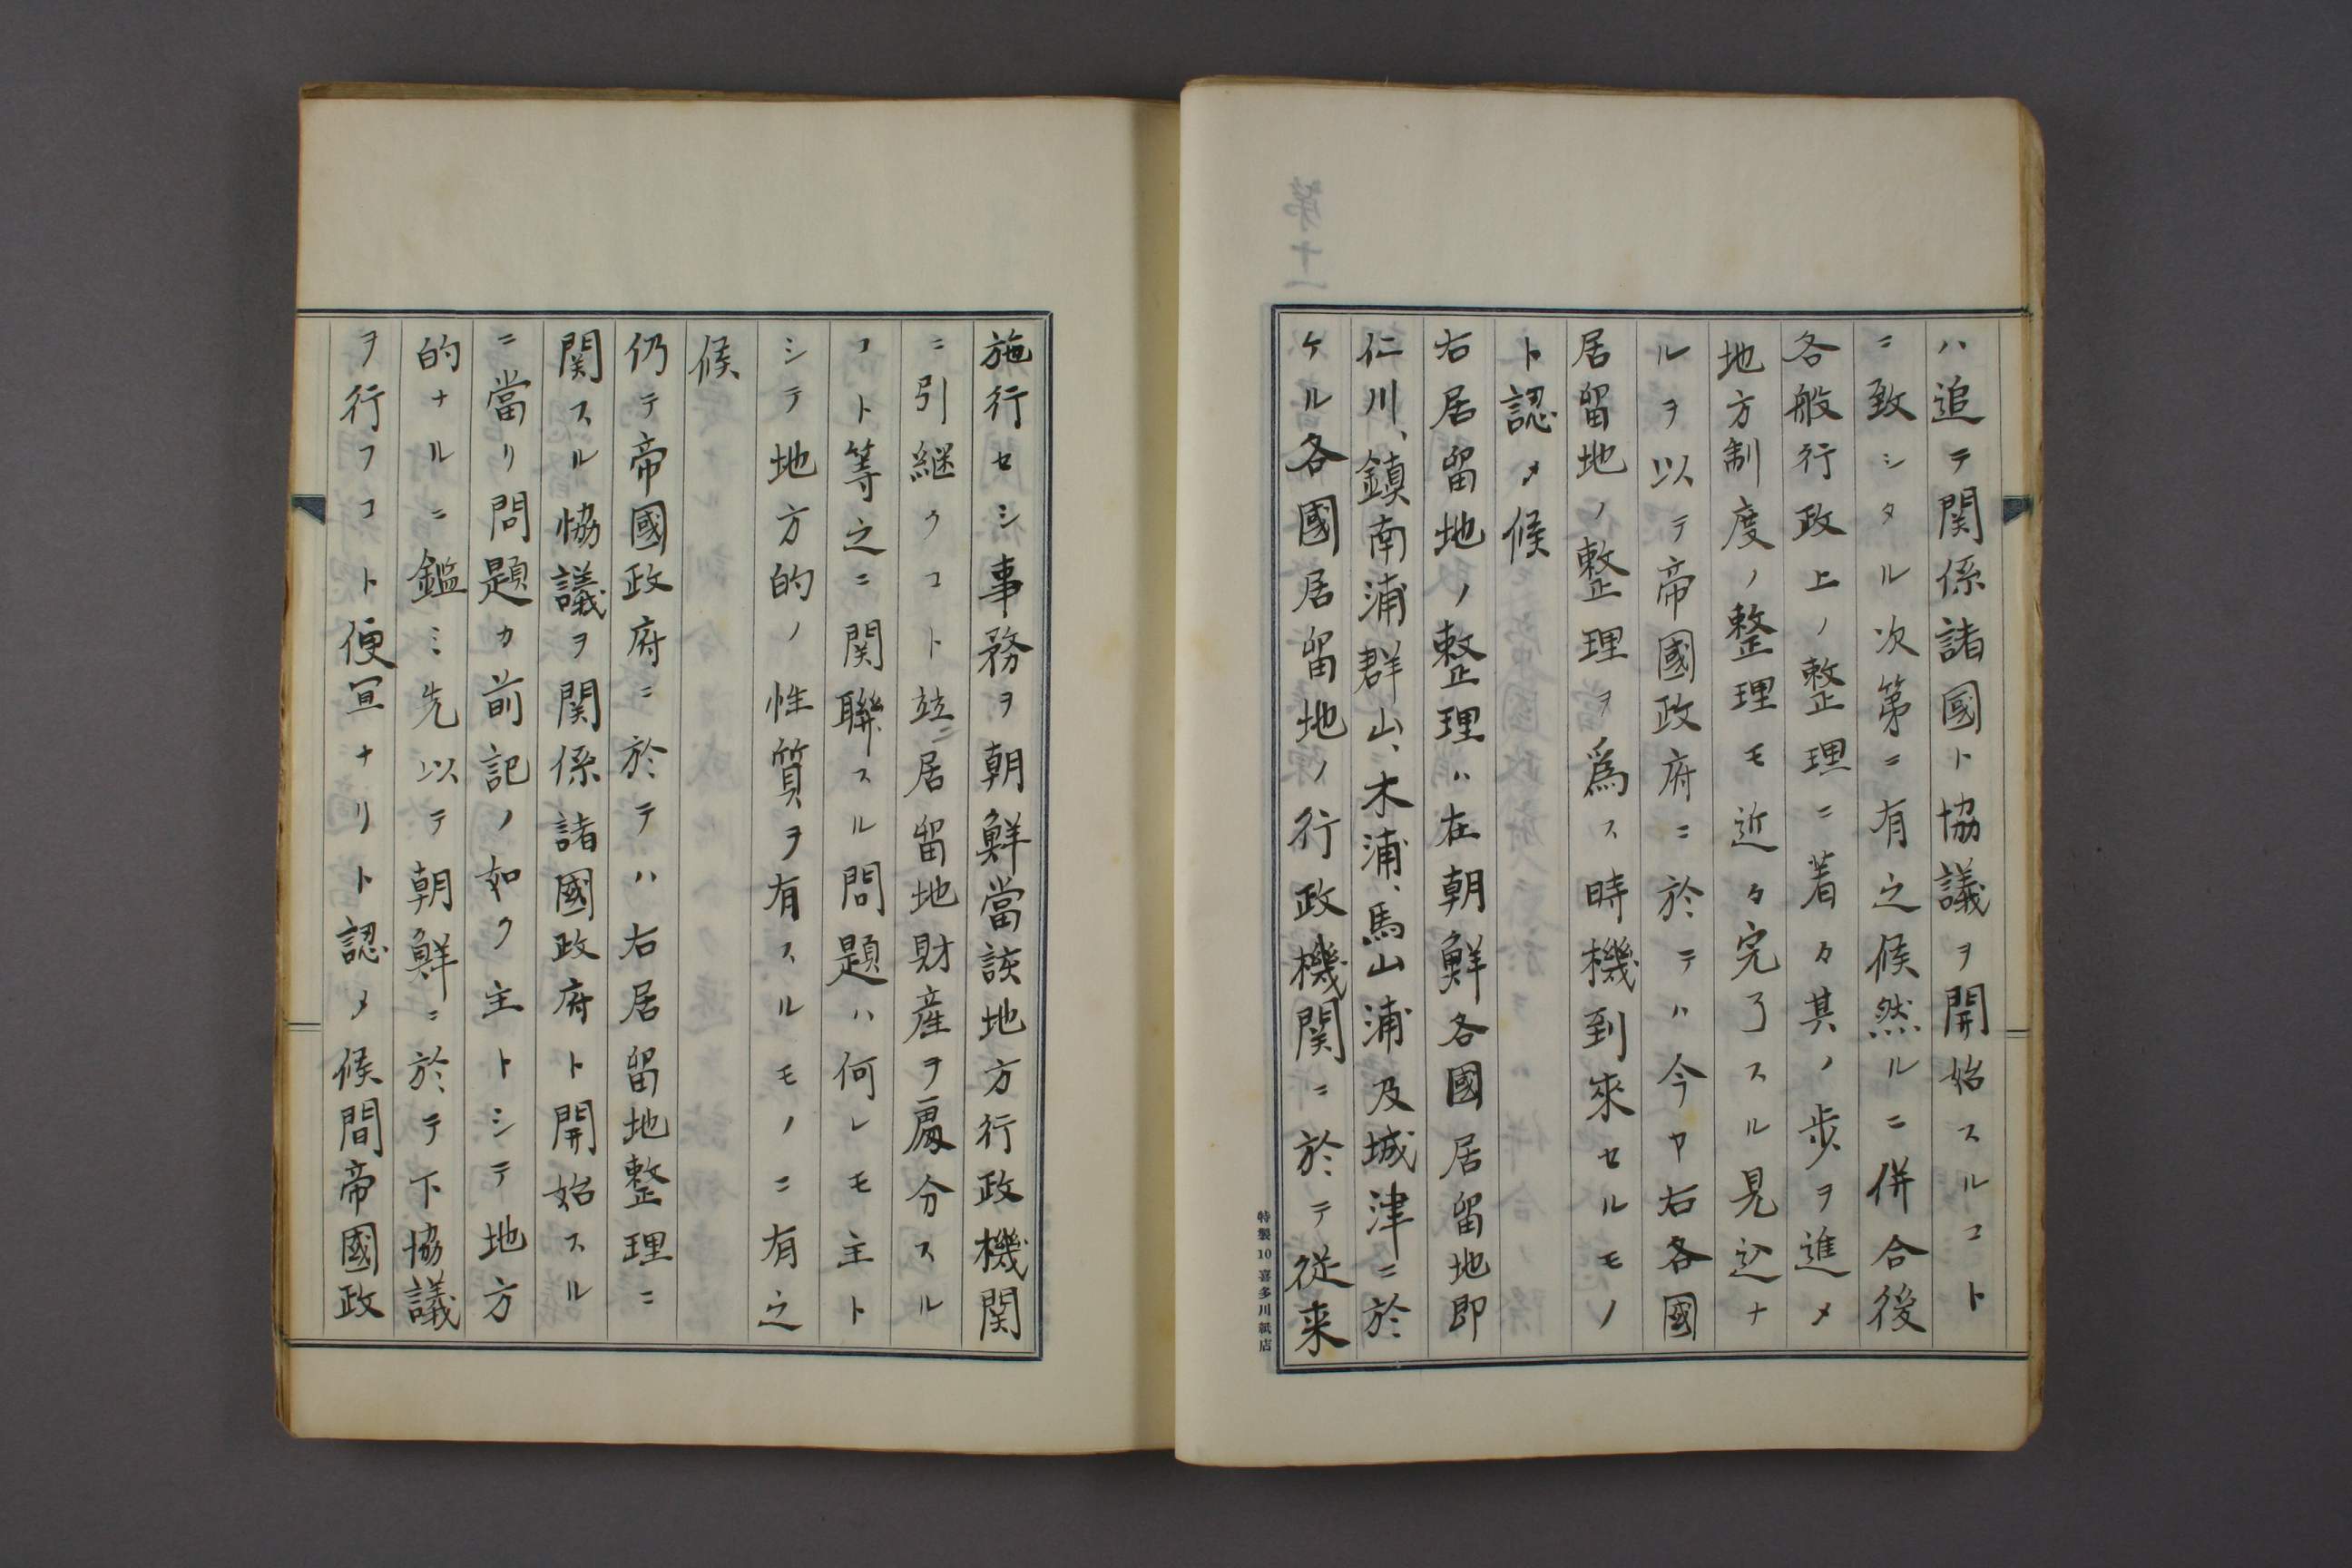 ハ追テ関係諸國ト協議ヲ開始スルコト
ニ致シタル次第ニ有之候然ルニ併合後
各般行政上ノ整理ニ着々其ノ歩ヲ進メ
地方制度ノ整理モ近々完了スル見込ナ
ルヲ以テ帝國政府ニ於テハ今ヤ右各國
居留地ノ整理ヲ爲ス時機到來セルモノ
ト認メ候
右居留地ノ整理ハ在朝鮮各國居留地即
仁川、鎮南浦群山、木浦、馬山浦及城津ニ於
ケル各國居留地ノ行政機関ニ於テ従来
特製10喜多川紙店
施行セシ事務ヲ朝鮮當該地方行政機関
ニ引継クコト竝ニ居留地財産ヲ處分スル
コト等之ニ関聯スル問題ハ何レモ主ト
シテ地方的ノ性質ヲ有スルモノニ有之
候
仍テ帝國政府ニ於テハ右居留地整理ニ
関スル協議ヲ関係諸國政府ト開始スル
ニ當リ問題カ前記ノ如ク主トシテ地方
的ナルニ鑑ミ先以テ朝鮮ニ於テ下協議
ヲ行フコト便宜ナリト認メ候間帝國政